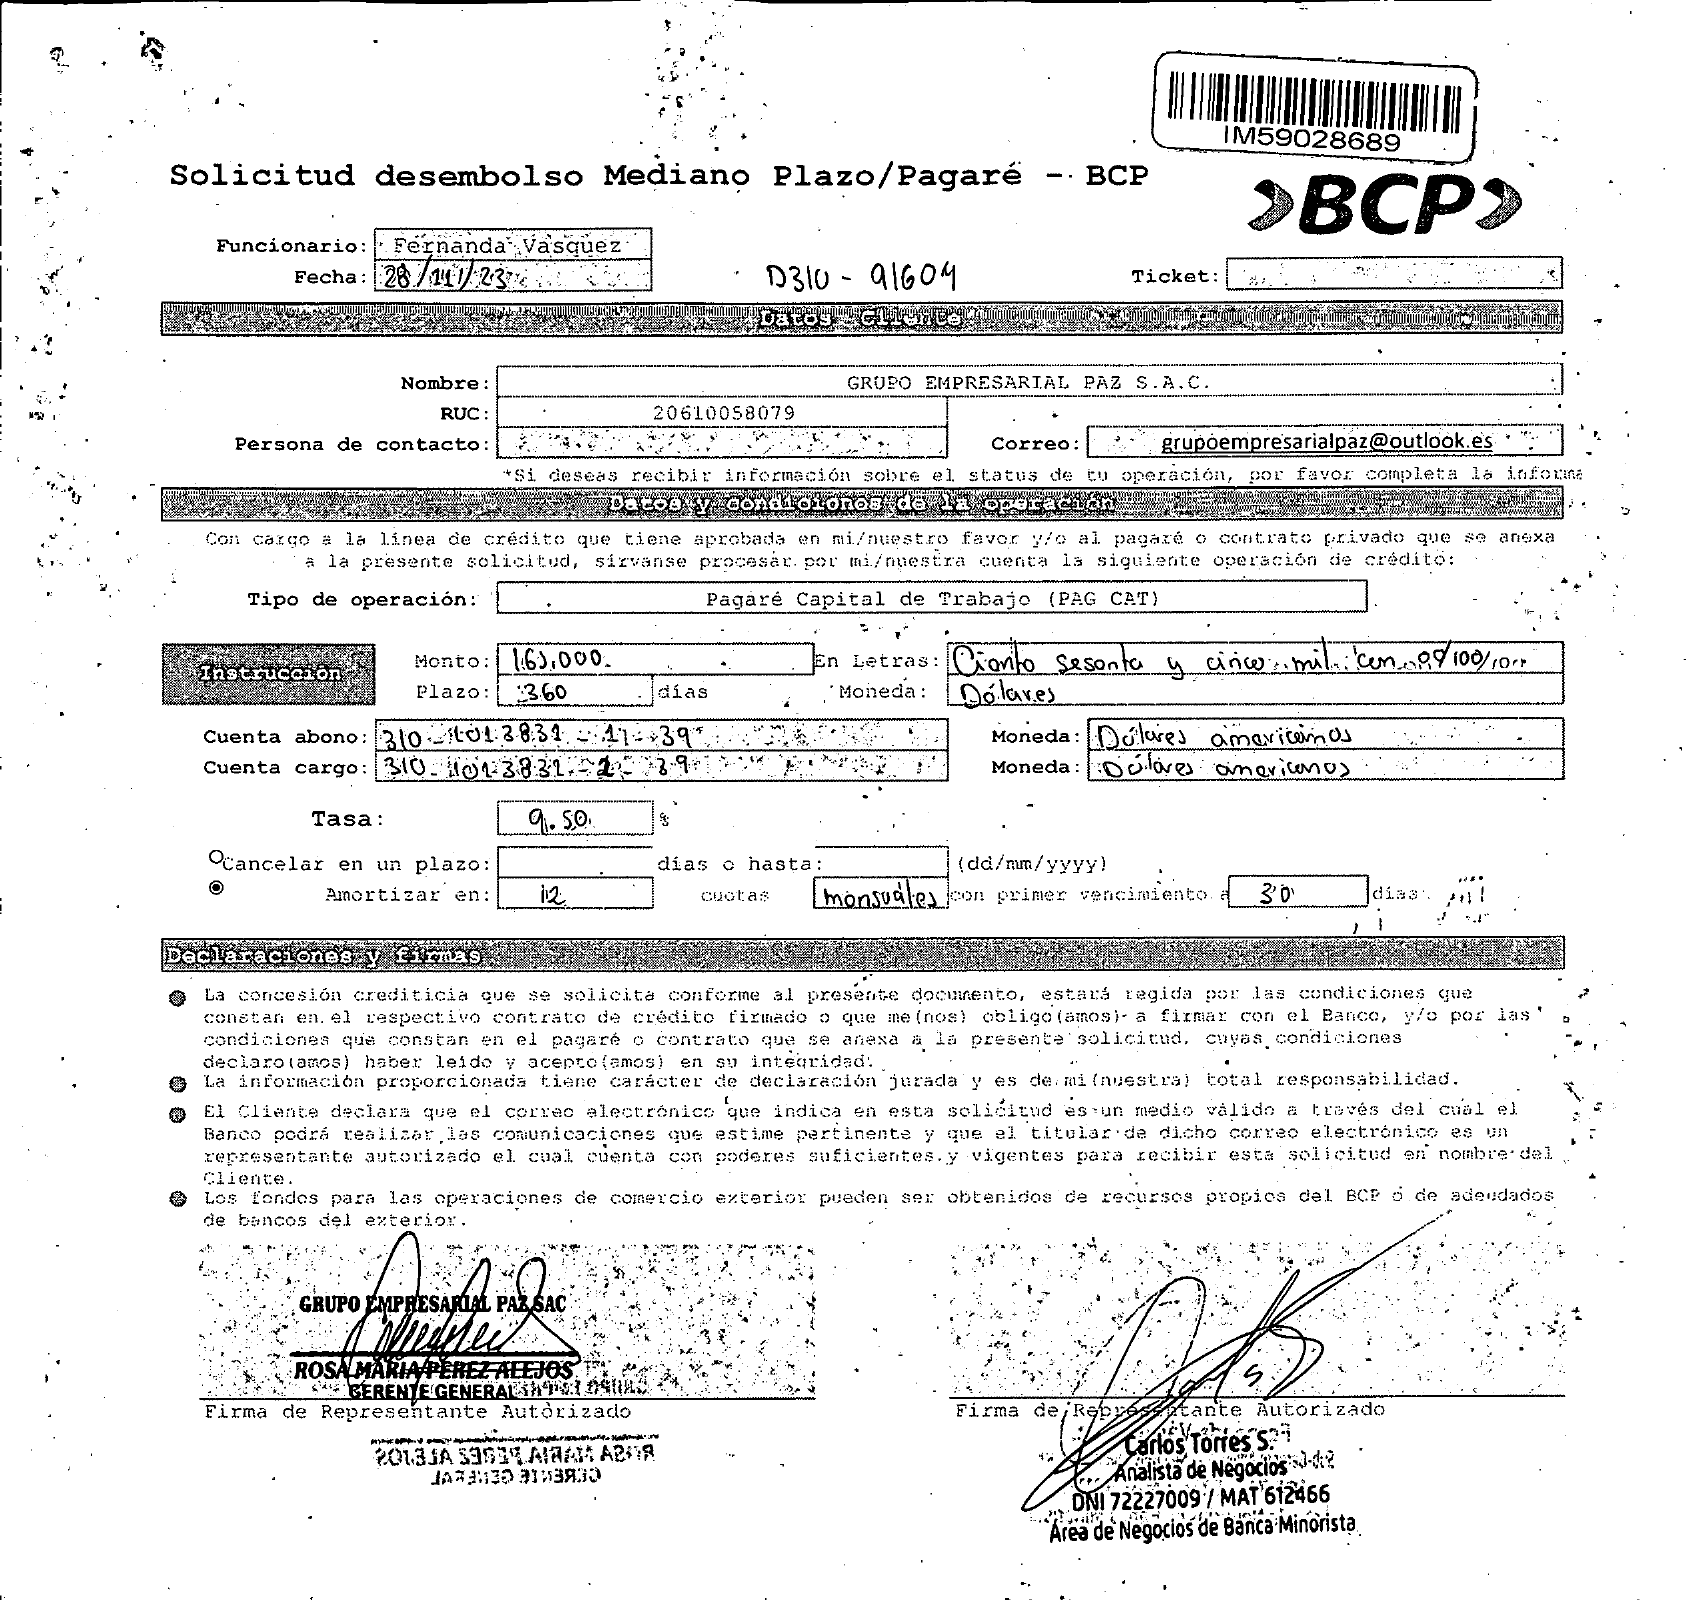 IM59028689
Solicitud desembolso Mediano Plazo/Pagaré - BCP
BCP
Funcionario: Fernanda Vasquez
Fecha: 28/11/23 D310 - 91604 Ticket:
Datos Cliente
Nombre: GRUPO EMPRESARIAL PAZ S.A.C.
RUC: 20610058079
Persona de contacto: Correo: grupoempresarialpaz@outlook.es
*Si deseas recibir información sobre el status de tu operación, por favor completa la informa
Datos y condiciones de la operación
Con cargo a la línea de crédito que tiene aprobada en mi/nuestro favor y/o al pagaré o contrato privado que se anexa
a la presente solicitud, sírvanse procesar por mi/nuestra cuenta la siguiente operación de crédito:
Tipo de operación: Pagaré Capital de Trabajo (PAG CAT)
Instrucción Monto: 165,000. En Letras: Ciento sesenta y cinco mil con /100
Plazo: 360 días Moneda: Dólares
Cuenta abono: 310 - Moneda: Dólares americanos
Cuenta cargo: 310 - Moneda: Dólares americanos
Tasa: 9.50 %
Cancelar en un plazo: días o hasta: (dd/mm/yyyy)
Amortizar en: 12 cuotas mensuales con primer vencimiento a 30 días
Declaraciones y firmas
La concesión crediticia que se solicita conforme al presente documento, estará regida por las condiciones que
constan en el respectivo contrato de crédito firmado o que me(nos) obligo(amos) a firmar con el Banco, y/o por las
condiciones que constan en el pagaré o contrato que se anexa a la presente solicitud, cuyas condiciones
declaro(amos) haber leido y acepto(amos) en su integridad.
La información proporcionada tiene carácter de declaración jurada y es de mi(nuestra) total responsabilidad.
El Cliente declara que el correo electrónico que indica en esta solicitud es un medio válido a través del cual el
Banco podrá realizar las comunicaciones que estime pertinente y que el titular de dicho correo electrónico es un
representante autorizado el cual cuenta con poderes suficientes y vigentes para recibir esta solicitud en nombre del
Cliente.
Los fondos para las operaciones de comercio exterior pueden ser obtenidos de recursos propios del BCP o de adeudados
de bancos del exterior.
GRUPO EMPRESARIAL PAZ SAC
ROSA MARIA PEREZ ALEJOS
GERENTE GENERAL
Firma de Representante Autorizado Firma de Representante Autorizado
ROSA MARIA PEREZ ALEJOS
GERENTE GENERAL
Carlos Torres S.
Analista de Negocios
DNI 72227009 / MAT 612466
Área de Negocios de Banca Minorista